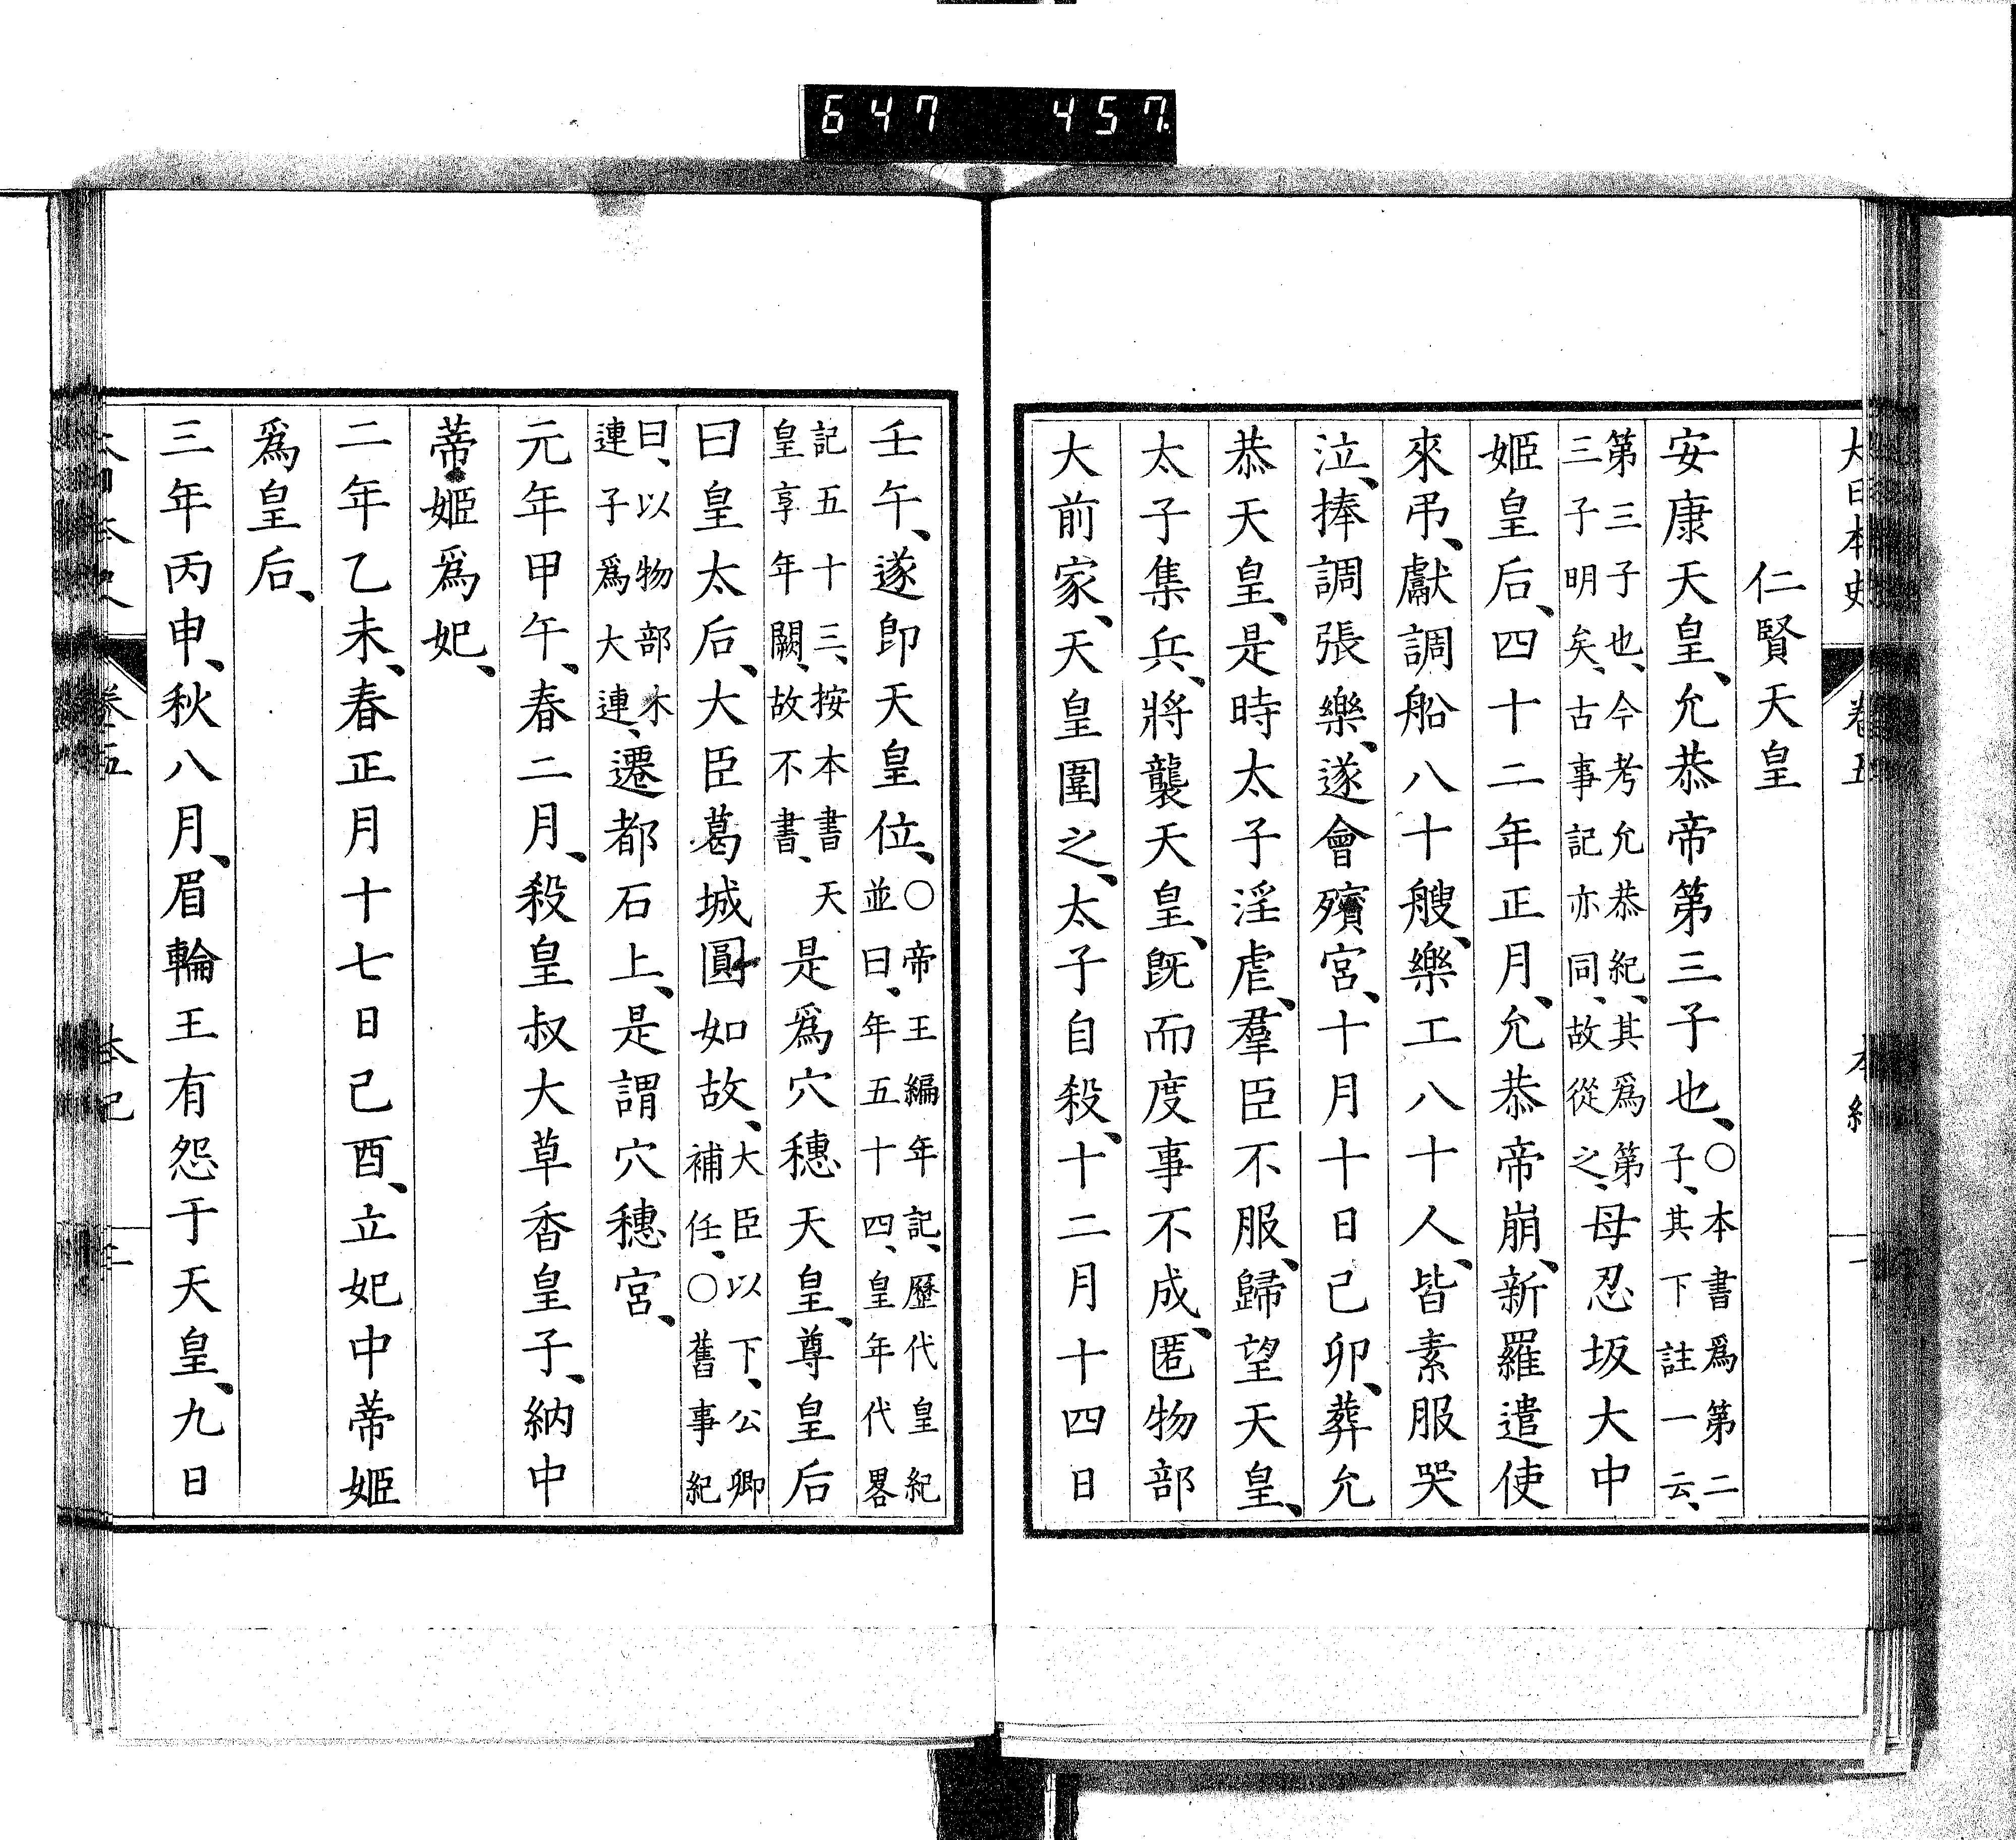 647 457.
大日本史 卷五 本紀 一
仁賢天皇
安康天皇、允恭帝第三子也、○本書爲第二子、其下註一云、
第三子也、今考允恭紀、其爲第三子明矣、古事記亦同、故從之、母忍坂大中
姬皇后、四十二年正月、允恭帝崩、新羅遣使
來弔、獻調船八十艘、樂工八十人、皆素服哭
泣、捧調張樂、遂會殯宮、十月十日己卯、葬允
恭天皇、是時太子淫虐、羣臣不服、歸望天皇、
太子集兵、將襲天皇、既而度事不成、匿物部
大前家、天皇圍之、太子自殺、十二月十四日
壬午、遂卽天皇位、○帝王編年記、歷代皇紀並曰、年五十四、皇年代畧
記五十三、按本書天皇享年闕、故不書、是爲穴穗天皇、尊皇后
曰皇太后、大臣葛城圓如故、大臣以下、公卿補任、○舊事紀
曰、以物部木連子爲大連、遷都石上、是謂穴穗宮、
元年甲午、春二月、殺皇叔大草香皇子、納中
蒂姬爲妃、
二年乙未、春正月十七日己酉、立妃中蒂姬
爲皇后、
三年丙申、秋八月、眉輪王有怨于天皇、九日
大日本史 卷五 本紀